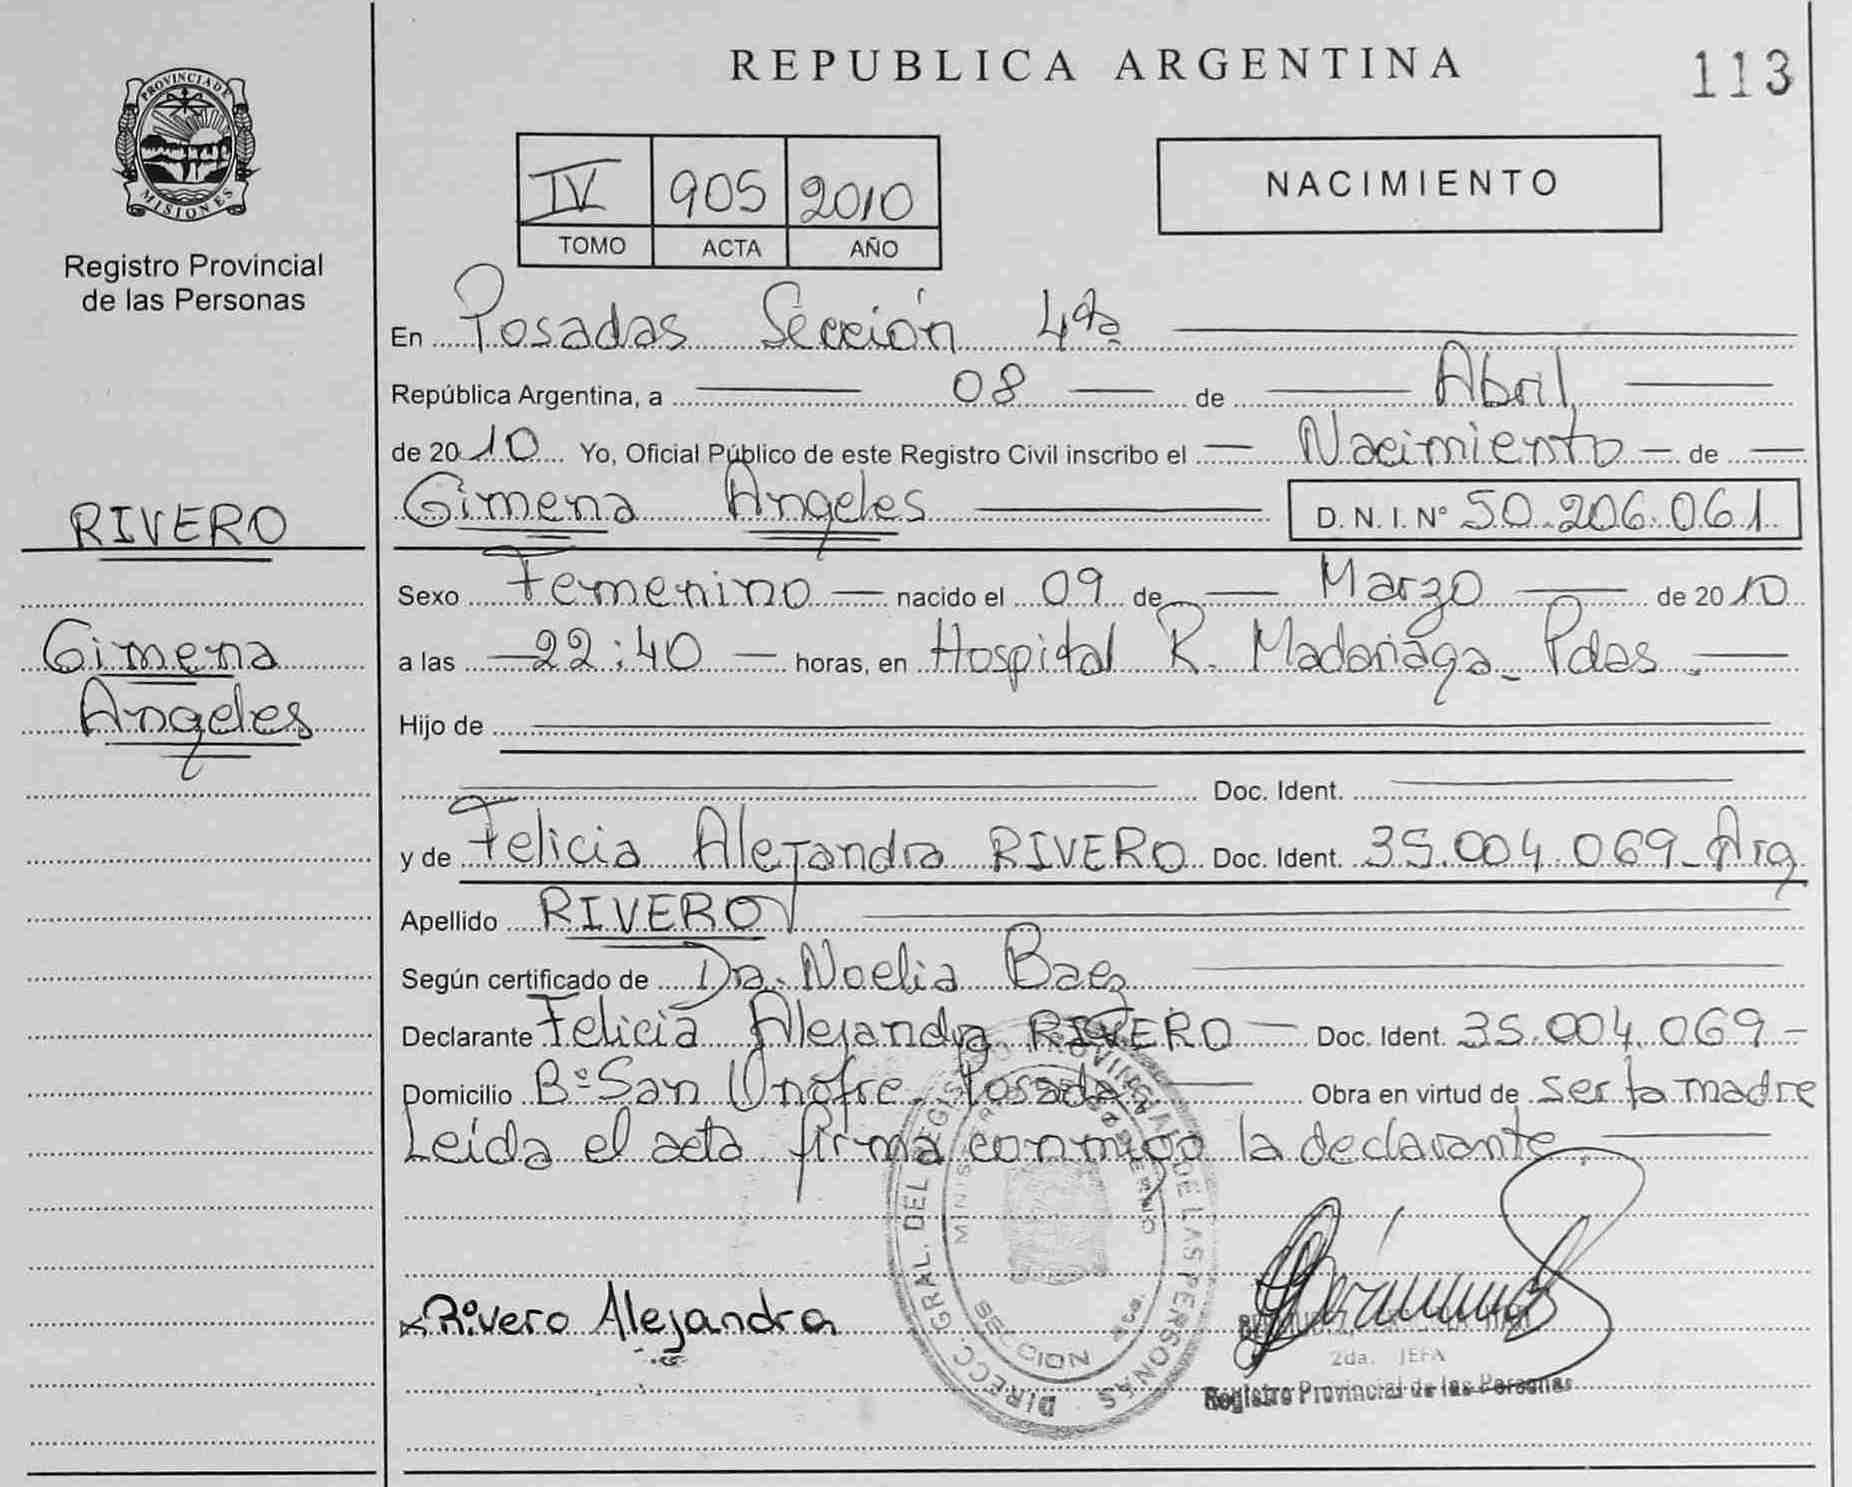 REPUBLICA ARGENTINA
113
PROVINCIA DE
MISIONES
Registro Provincial
de las Personas
IV 905 2010
TOMO ACTA AÑO
NACIMIENTO
En Posadas Sección 4ta
República Argentina, a 08 de Abril
de 2010 Yo, Oficial Público de este Registro Civil inscribo el Nacimiento de
RIVERO
Gimena Angeles D.N.I. Nº 50.206.061
Sexo Femenino nacido el 09 de Marzo de 2010
Gimena
a las 22:40 horas, en Hospital R. Madariaga - Pdas.
Angeles
Hijo de
Doc. Ident.
y de Felicia Alejandra RIVERO Doc. Ident. 35.004.069 - Arg
Apellido RIVERO
Según certificado de Dra. Noelia Baez
Declarante Felicia Alejandra RIVERO Doc. Ident. 35.004.069 -
Domicilio Bº San Onofre - Posadas Obra en virtud de ser la madre
Leída el acta firma conmigo la declarante.
DIRECC. GRAL. DEL REGISTRO PROVINCIAL DE LAS PERSONAS
x Rivero Alejandra
2da. JEFA
Registro Provincial de las Personas